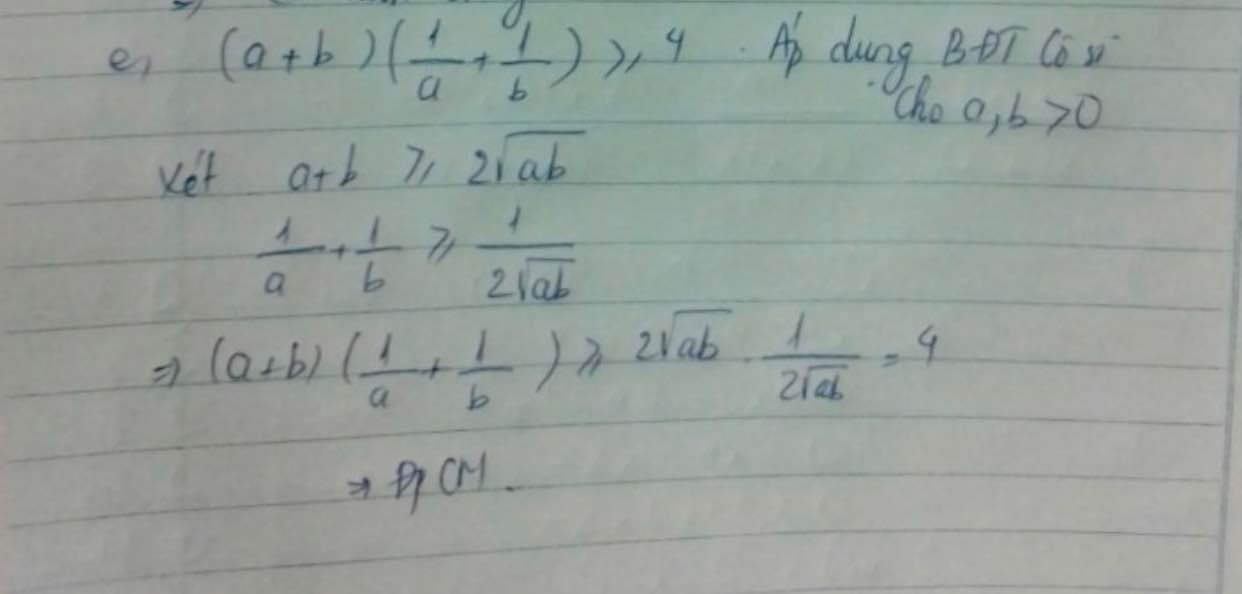 e, (a+b)(1/a + 1/b) ≥ 4 . Áp dụng BĐT Cô si
Cho a, b > 0
Xét a+b ≥ 2√ab
1/a + 1/b ≥ 1/2√ab
⇒ (a+b)(1/a + 1/b) ≥ 2√ab . 1/2√ab = 4
⇒ ĐPCM.